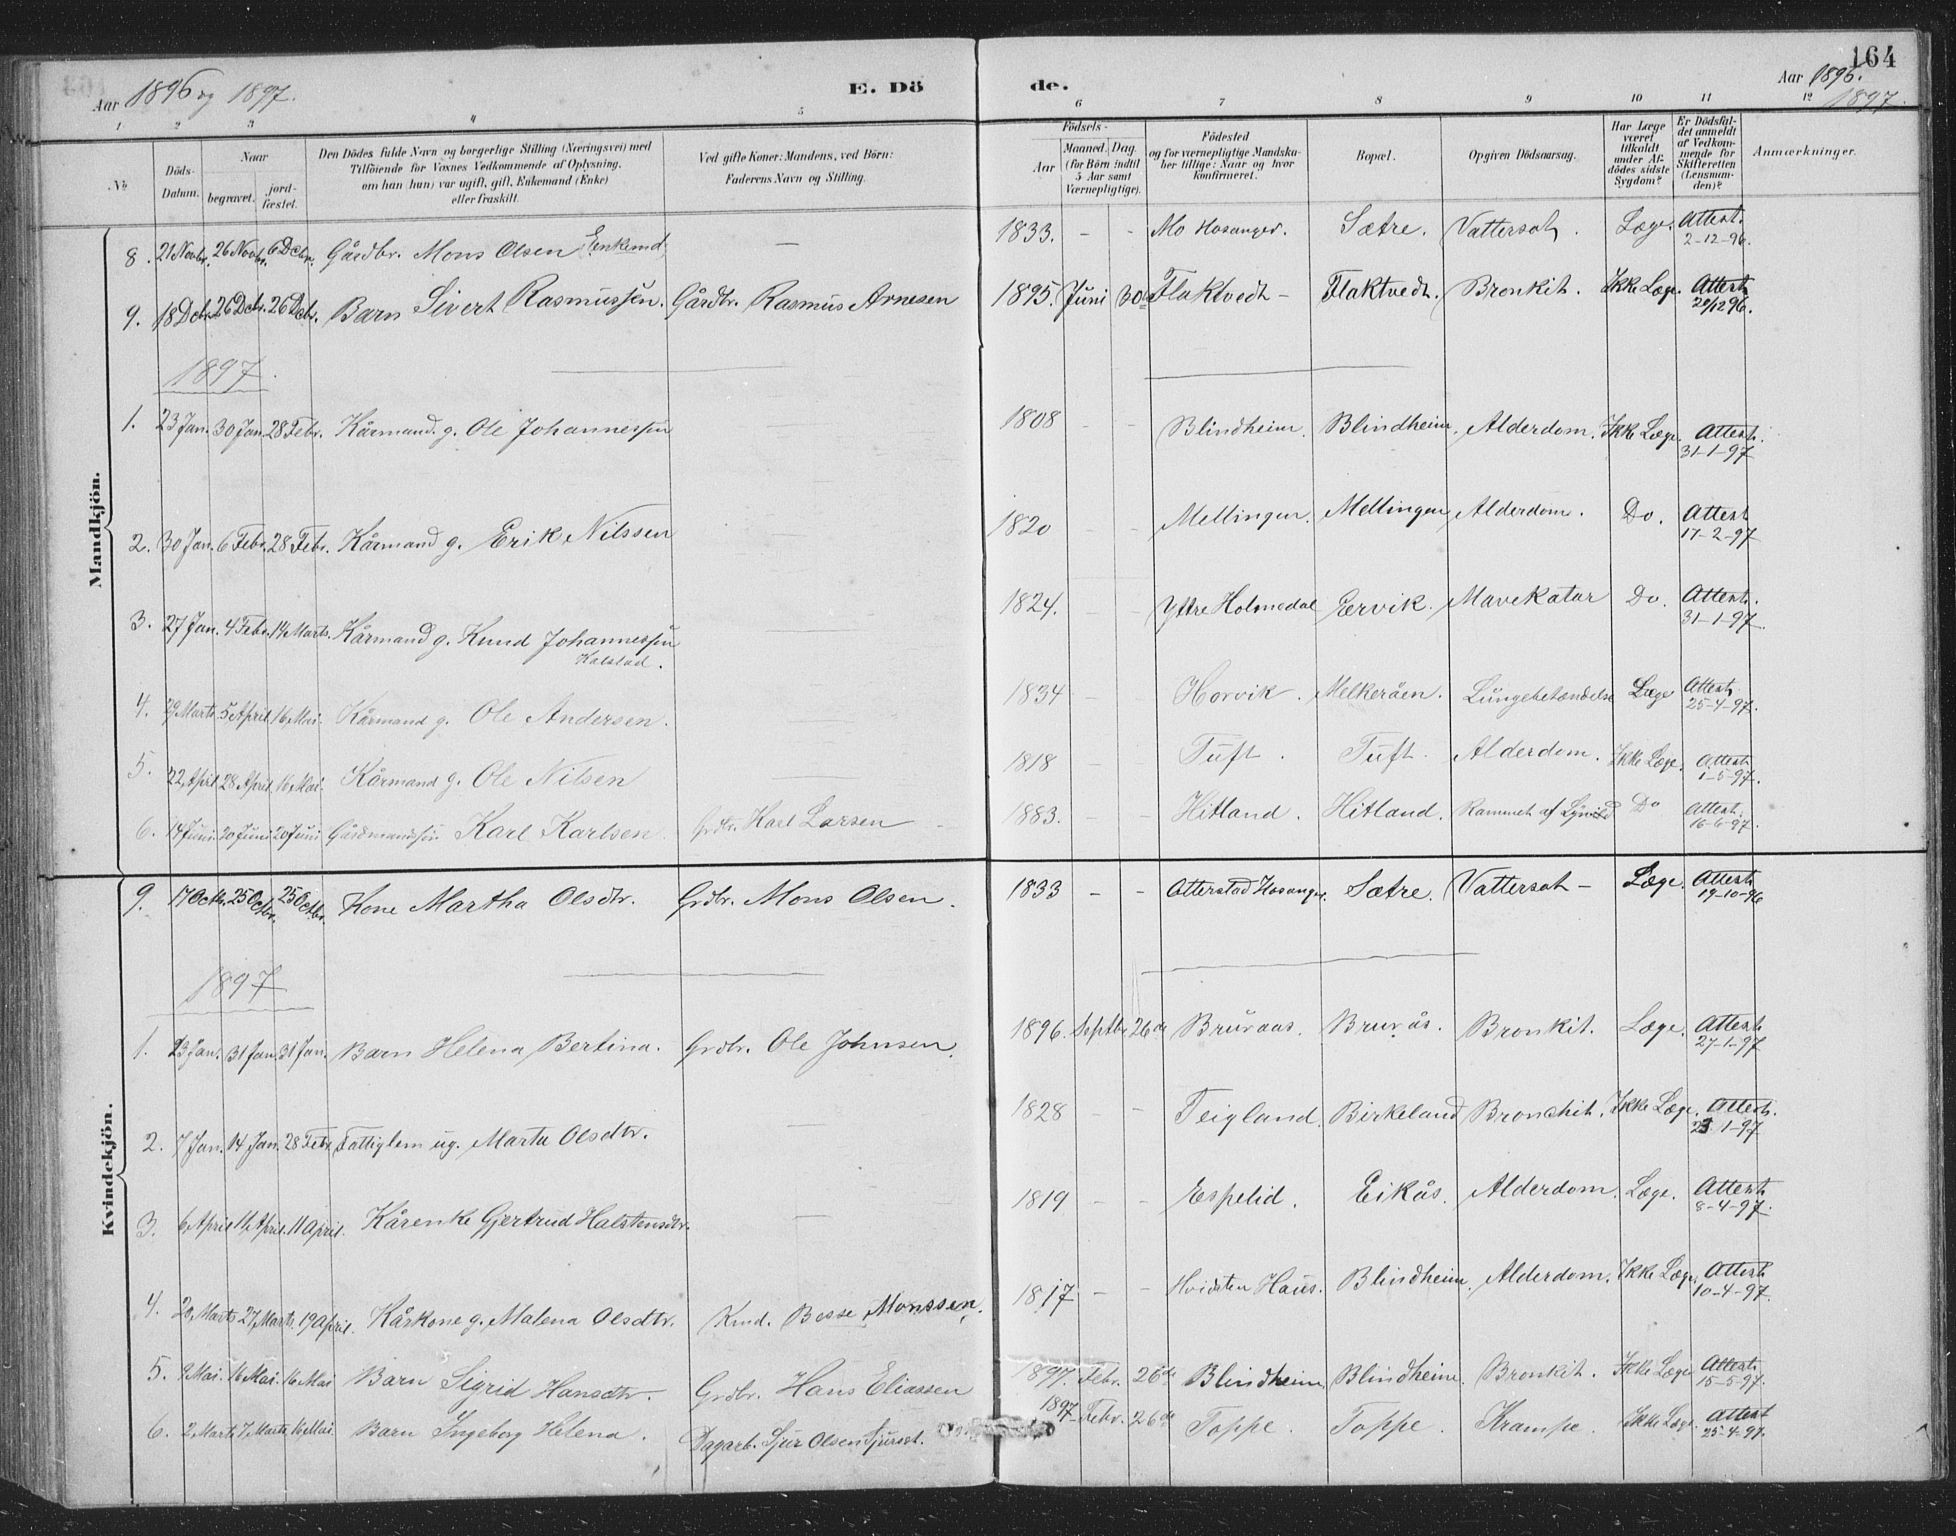 164
Aar 1896 og 1897.
E. Dö
de.
Aar 1896.
1897.
1 2 3 4 5 6 7 8 9 10 11 12
№
Döds-Datum.
Naar
begravet.
jordfæstet.
Den Dödes fulde Navn og borgerlige Stilling (Næringsvei) med
Tilföiende for Voxnes Vedkommende af Oplysning,
om han (hun) var ugift, gift, Enkemand (Enke)
eller fraskilt.
Ved gifte Koner: Mandens, ved Börn:
Faderens Navn og Stilling.
Födsels-
Aar
Maaned. Dag.
(for Börn indtil
5 Aar samt
Værnepligtige).
Födested
og for værnepligtige Mandskaber tillige: Naar og hvor
konfirmeret.
Bopæl.
Opgiven Dödsaarsag.
Har Læge
været
tilkaldt
under Afdödes sidste
Sygdom?
Er Dödsfaldet anmeldt
af Vedkommende for
Skifteretten
(Lensmanden)?
Anmærkninger.
Mandkjön.
8. 21 Novbr. 26 Novbr. 6 Decbr. Gårdbr. Mons Olsen Enkemd — 1833. - - Mo Hosanger. Sætre. Vattersot. Læge. Attest. 2-12-96.
9. 18 Dcbr. 26 Dcbr. 26 Dcbr. Barn Sivert Rasmussen. Gårdbr. Rasmus Arnesen 1895. Juni 30 Flaktvedt - Flaktvedt. Bronkit. Ikke Læge. Attest. 20/12 96.
1897.
1. 23 Jan. 30 Jan. 28 Febr. Kårmand. g. Ole Johannessen 1808 - - Blindheim. Blindheim. Alderdom. Ikke Læge. Attest. 31-1-97
2. 30 Jan. 6 Febr. 28 Febr. Kårmand g. Erik Nilssen 1820 - - Mellingen. Mellingen Alderdom. Do. Attest 17-2-97
3. 27 Jan. 4 Febr. 14 Marts. Kårmand g. Knud Johannessen
Kalstad.
1824. - - Yttre Holmedal Eervik. Mavekatar Do. Attest. 31-1-97.
4. 29 Marts 5 April 16 Mai. Kårmand g. Ole Andersen. 1834 - - Horvik. Melkeråen. Lungebetændelse Læge Attest. 25-4-97.
5. 22 April 28 April 16 Mai. Kårmand g. Ole Nilsen 1818 - - Tuft. Tuft. Alderdom. Ikke Læge. Attest 1-5-97.
6. 14 Juni. 20 Juni 20 Juni Gårdmandssön Karl Karlsen Grdbr. Karl Larsen 1883. - - Hitland. Hitland. Rammet af Lynild Do Attest. 16-6-97.
Kvindekjön.
9. 17 Octbr. 25 Octbr. 25 Octbr. Kone Martha Olsdtr. Grdbr. Mons Olsen. 1833 - - Otterstad Hosanger. Sætre. Vattersot - Læge. Attest. 19-10-96
1897
1. 23 Jan. 31 Jan. 31 Jan. Barn Helena Bertina. Grdbr. Ole Johnsen. 1896. Septbr 26de Brúraas. Brurås. Bronkit. Læge. Attest. 27-1-97
2. 7 Jan. 14 Jan. 28 Febr. Fattiglem ug. Marta Olsdtr. — 1828 - - Teigland. Birkeland Bronchit. Ikke Læge. Attest. 23-1-97
3. 6 April 11 April. 11 April. Kårenke Gjertrud Halstensdtr. — 1819 - - Espelid. Eikås. Alderdom. Læge. Attest. 8-4-97.
4. 20 Marts 27 Marts. 19 April. Kårkone g. Malena Olsdtr. Kmd. Besse Monssen. 1817 - - Hvidsten Haus. Blindheim. Alderdom. Ikke Læge. Attest. 10-4-97.
5. 9 Mai. 16 Mai. 16 Mai Barn Sigrid Hansdtr. Grdbr. Hans Eliassen 1897. Febr. 26de Blindheim. Blindheim. Bronkit. Ikke Læge Attest. 15-5-97.
6. 2 Marts 7 Marts 16 Mai. Barn Ingeborg Helena. Dagarb. Sjur Olsen 1897 Febr. 26de Toppe. Toppe. Krampe. Ikke Læge. Attest 25-4-97.